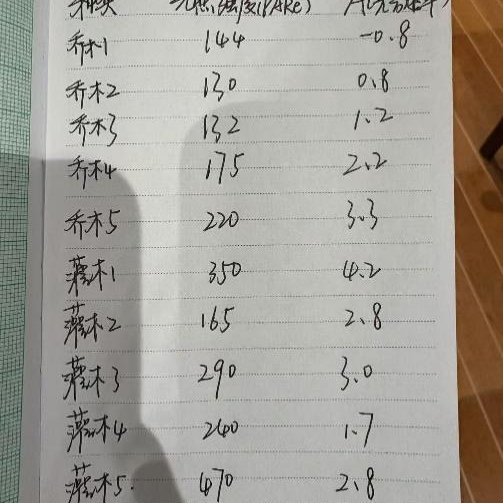 种类 光照强度(PARe) A(光合速率)
乔木1 144 -0.8
乔木2 130 0.8
乔木3 132 1.2
乔木4 175 2.2
乔木5 220 3.3
灌木1 350 4.2
灌木2 165 2.8
灌木3 290 3.0
灌木4 240 1.7
灌木5. 470 2.8